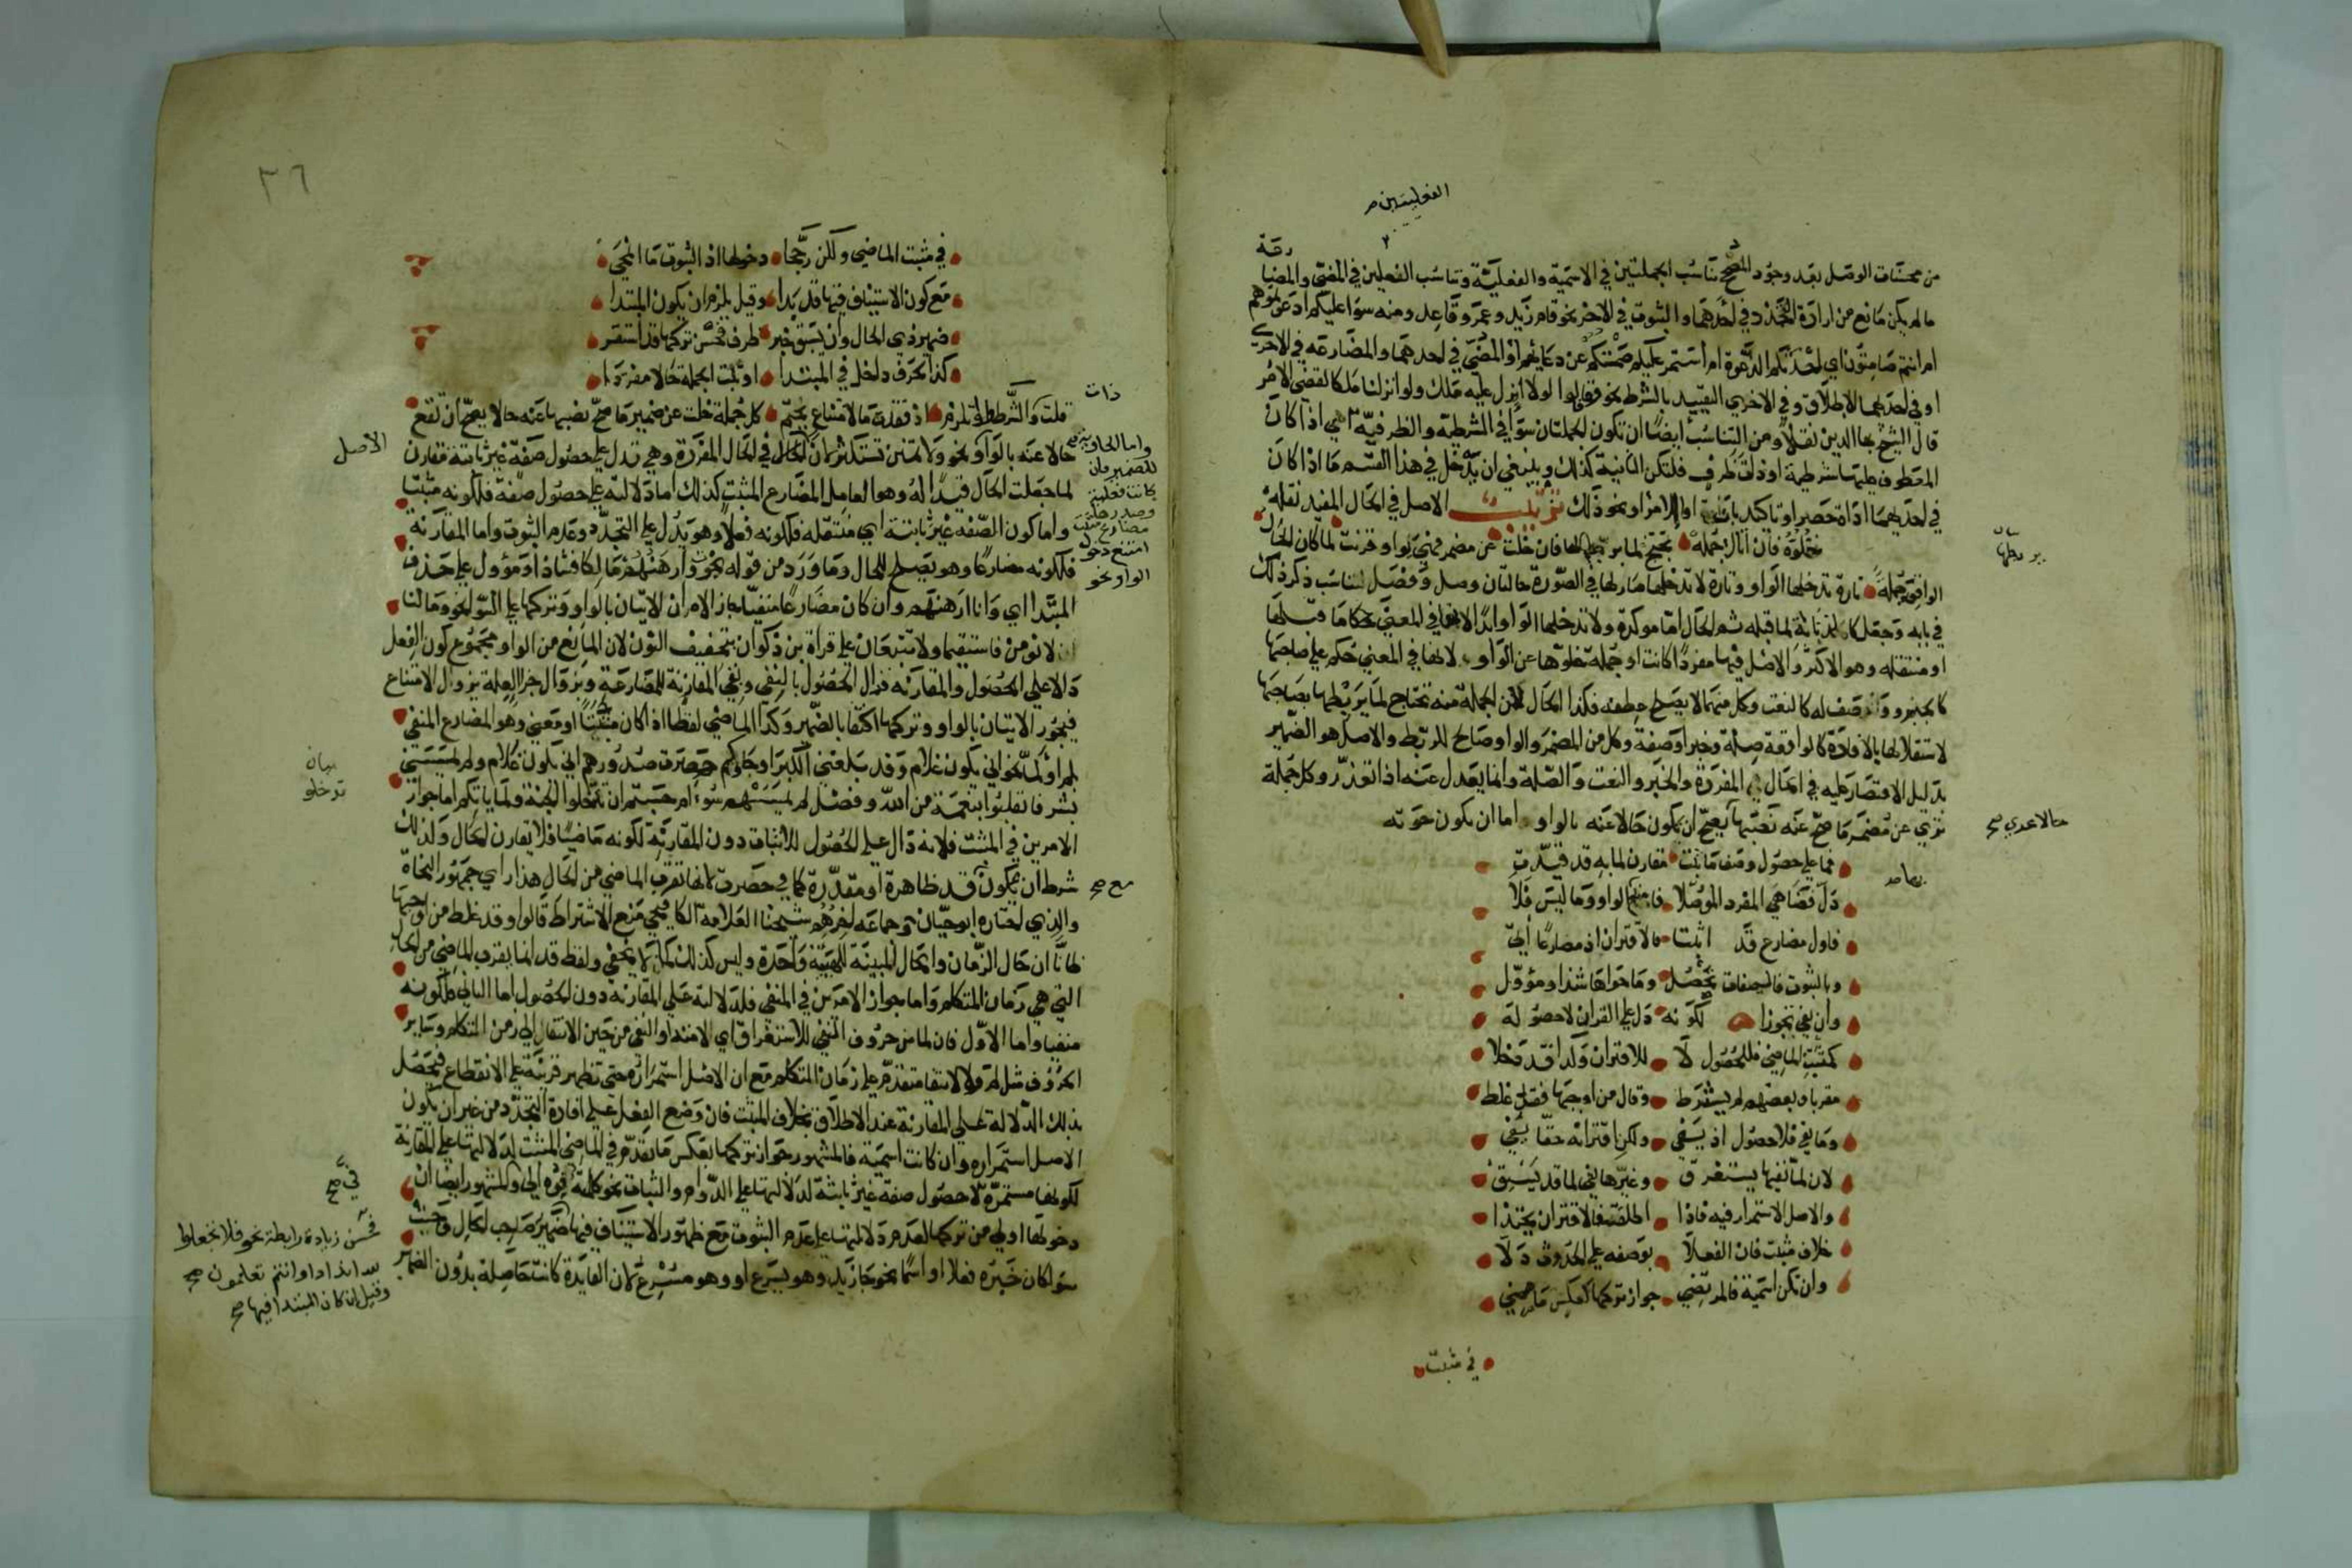 الفعليتين
من محسنات الوصل بعد وجود المصحح تناسب الجملتين في الاسمية والفعلية وتناسب الفعلين في المضي والمضارعة
ما لم يكن مانع من ارادة التجدد في احدهما والثبوت في الاخر نحو قام زيد وعمرو قاعد ومنه سوا عليكم ادعوتموهم
ام انتم صامتون اي احدثتم الدعوة ام استمر عليكم صمتكم عن دعايهم او المضي في احدهما والمضارعه في الاخرى
او في احدهما الاطلاق وفي الاخري التقييد بالشرط نحو وقالوا لولا انزل عليه ملك ولو انزلنا ملكا لقضي الامر
قال الشيخ بها الدين نقلا ومن التناسب ايضا ان تكون الجملتان سوا في الشرطية والظرفية اي اذا كان
المعطوف عليها شرطية او ذات ظرف فلتكن الثانية كذلك وينبغي ان يدخل في هذا القسم ما اذا كان
في احديهما اداة حصر او تاكيد بان او اللام او نحو ذلك تذنيب الاصل في الحال المفيد نقله
خلوه فان اتاك جمله تحتج لما فان خلت عن مضمر فهي بواو قرنت لما كان الحال
الواقعة جملة تارة تدخلها الواو وتارة لا تدخلها صار لها في الصورة حالتان وصل وفصل فناسب ذكر ذلك
في بابه وجعل كا لما قبله ثم الحال اما موكدة ولا تدخلها الواو ابدا لانها في المعنى كما قبلها
او منتقلة وهو الاكثر والاصل فيها مفردا كانت او جملة خلوها عن الواو لانها في المعني حكم علي صاحبها
كالخبر ووصف له كالنعت وكل منهما لا يصلح عطفه فكذا الحال لكن الجملة منه تحتاج لما يربطها بصاحبها
لاستقلالها بالافادة كالواقعة صلة وخبرا وصفة وكل من المضمر والواو صالح للربط والاصل هو الضمير
بدليل الاقتصار عليه في الحال المفردة والخبر والنعت والصلة وانما يعدل عنه اذا تعذر وكل جملة
تري عن مضمر ما صح عنه نصبها يصح ان يكون حالا عنه بالواو اما ان يكون حوته
حالا عدي صح
فما علي حصول وصف ما ثبت مقارن لما به قد قيدت
دل فضاهي المفرد الموصلا فامنع الواو وما ليس فلا
فاول مضارع قد اثبتا فالاقتران اذ مضارعا اتي
وبالثبوت فالصفات تحصل وما حواها شذ او مؤول
وان نفي تجوزا لكونه دل علي القران لا حصوله
كمثبت الماضي فللحصول لا للاقتران ولذا قد دخلا
مقربا وبعضهم لم يشترط وقال من اوجبها فقد غلط
وما نفي فلا حصول اذ ينفي ولكن اقترانه حقا يفي
لان لما نفيها يستغرق وغيرها نفي لما قد يسبق
والاصل الاستمرار فيه فاذا اطلقت فالاقتران يحتذا
خلاف مثبت فان الفعلا بوصفه علي الحدوث دلا
وان تكن اسمية فالمرتضي جواز تركها كعكس ما مضي
في مثبت
٣٦
في مثبت الماضي ولكن رجحا دخولها اذ الثبوت ما انمحي
مع كون الاستيناف فيها قد بدا وقيل يلزم ان يكون المبتدا
ضمير ذي الحال وان يسبق خبر ظرف فحسن تركها قد استقر
كذا بحرف داخل في المبتدا او تلت الجملة حالا مفردا
ذات
قلت والشرط الواو تلزم اذ فقدت ما لامتناع يحتم كل جملة خلت عن ضمير ما صح نصبها عنه حالا يصح ان تقع
حالا عنه بالواو نحو ولا تمنن تستكثر لان الحال في الحال المفردة وهي تدل علي حصول صفة غير ثابتة مقارن
الاصل
واما الحاوية
للضمير فان
كانت فعلية
وصدرها
مضارع مثبت
امتنع دخول
الواو نحو
لما جعلت الحال قيدا له وهو العامل المضارع المثبت كذلك اما دلالته علي حصول صفة فلكونه مثبتا
واما كون الصفه غير ثابتة اي منتقله فلكونه فعلا وهو يدل علي التجدد وعدم الثبوت واما المقارنة
فلكونه مضارعا وهو يصلح للحال وما ورد من قوله نجوت وارهنهم مالكا فشاذ او مؤول علي حذف
المبتدا اي وانا ارهنهم وان كان مضارعا منفيا جاز الامران الاتيان بالواو وتركها علي السوا نحو وما لنا
لا نومن فاستقيما ولا تتبعان علي قراة بن ذكوان بتخفيف النون لان المانع من الواو مجموع كون الفعل
دالا علي الحصول والمقارنه فزال الحصول بالنفي وبقي المقارنة للمضارعة وبزوال جزا العلة يزول الامتناع
فيجوز الاتيان بالواو وتركها اكتفا بالضمير وكذا الماضي لفظا اذا كان مثبتا او معني وهو المضارع المنفي
بلم او لما نحو اني يكون غلام وقد بلغني الكبر او جاوكم حصرت صدورهم اني يكون غلام ولم يمسسني
بشر فانقلبوا بنعمة من الله وفضل لم يمسسهم سو ام حسبتم ان تدخلوا الجنة ولما ياتكم اما جواز
بيان
تدخلو
الامرين في المثبت فلانه دال علي الحصول للاثبات دون المقارنة لكونه ماضيا فلا يقارن الحال ولذلك
شرط ان يكون قد ظاهرة او مقدرة كما في حصرت لانها تقرب الماضي من الحال هذا راي جمهور النحاة
مع صح
والذي اختاره ابو حيان وجماعه اخرهم شيخنا العلامه الكافيجي منع الاشتراط قالوا وقد غلط من اوجبها
ظانا ان حال الزمان والحال المبينه للهيئة واحدة وليس كذلك كما لا يخفي ولفظ قد انما يقرب الماضي من الحال
التي هي زمان المتكلم واما جواز الامرين في المنفي فلدلالته علي المقارنه دون الحصول اما الثاني فلكونه
منفيا واما الاول فان لما من حروف النفي للاستغراق اي الامتداد النفي من حين الانتقا الي زمن المتكلم وساير
الحروف مثل لم لانتفا متقدم علي زمان المتكلم مع ان الاصل استمرار حتي تظهر قرينة علي الانقطاع فيحصل
بذلك الدلالة علي المقارنة عند الاطلاق بخلاف المثبت فان وضع الفعل علي افادة التجدد من غير ان يكون
الاصل استمراره وان كانت اسمية فالمشهور جواز تركها بعكس ما تقدم في الماضي المثبت لدلالتها علي المقارنة
لكونها مستمرة لا حصول صفة غير ثابتة لدلالتها علي الدوام والثبات نحو كلمته فوه الي والمشهور ايضا ان
في صح
دخولها اولي من تركها لعدم دلالتها علي عدم الثبوت مع ظهور الاستيناف فيها ضمير صاحب الحال وجبت
سوا كان خبره فعلا او اسما نحو جا زيد وهو يسرع او وهو مسرع لان الفايدة كانت حاصلة بدون الضمير
فحسن زيادة رابطة نحو فلا تجعلوا
لله اندادا وانتم تعلمون صح
وقيل ان كان المبتدا فيها صح